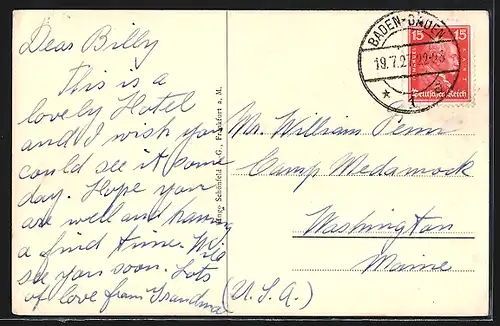 Dear Billy
This is a
lovely Hotel
and I wish you
could see it some
day. Hope you
are well and having
a find time. Will
see you soon. Lots
of love from Grandma
Schönfeld G., Frankfurt a. M.
BADEN-BADEN
19.7.27
* 1
15 15
KANT
Deutsches Reich
Mr. William Penn
Camp Medamock
Washington
Maine
(U.S.A.)